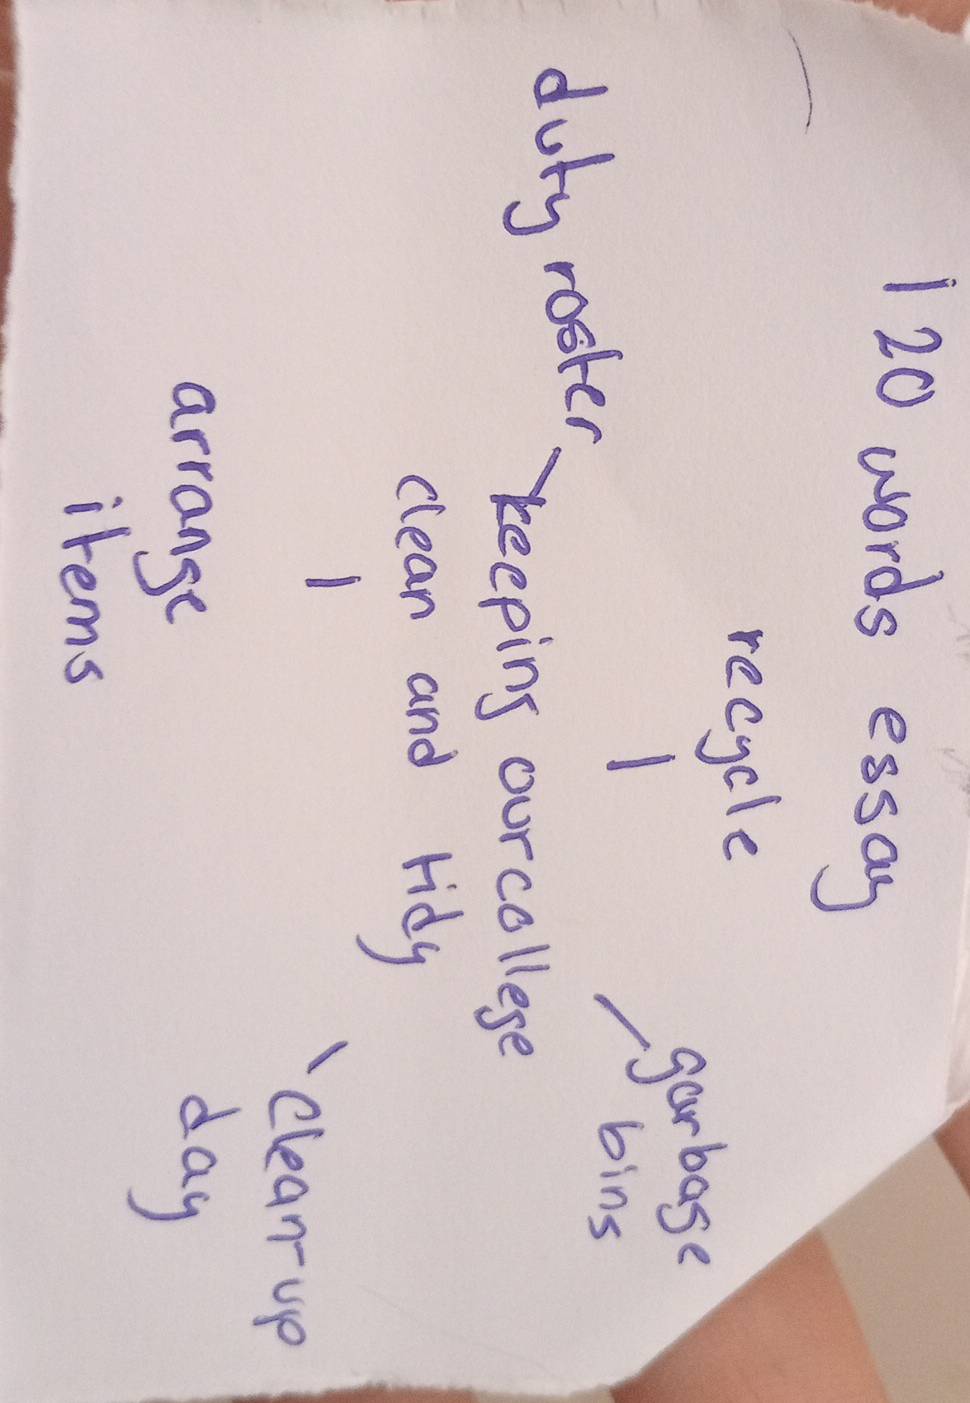 120 words essay
recycle
garbage
bins
duty roster
keeping our college
clean and tidy
clean-up
day
arrange
items